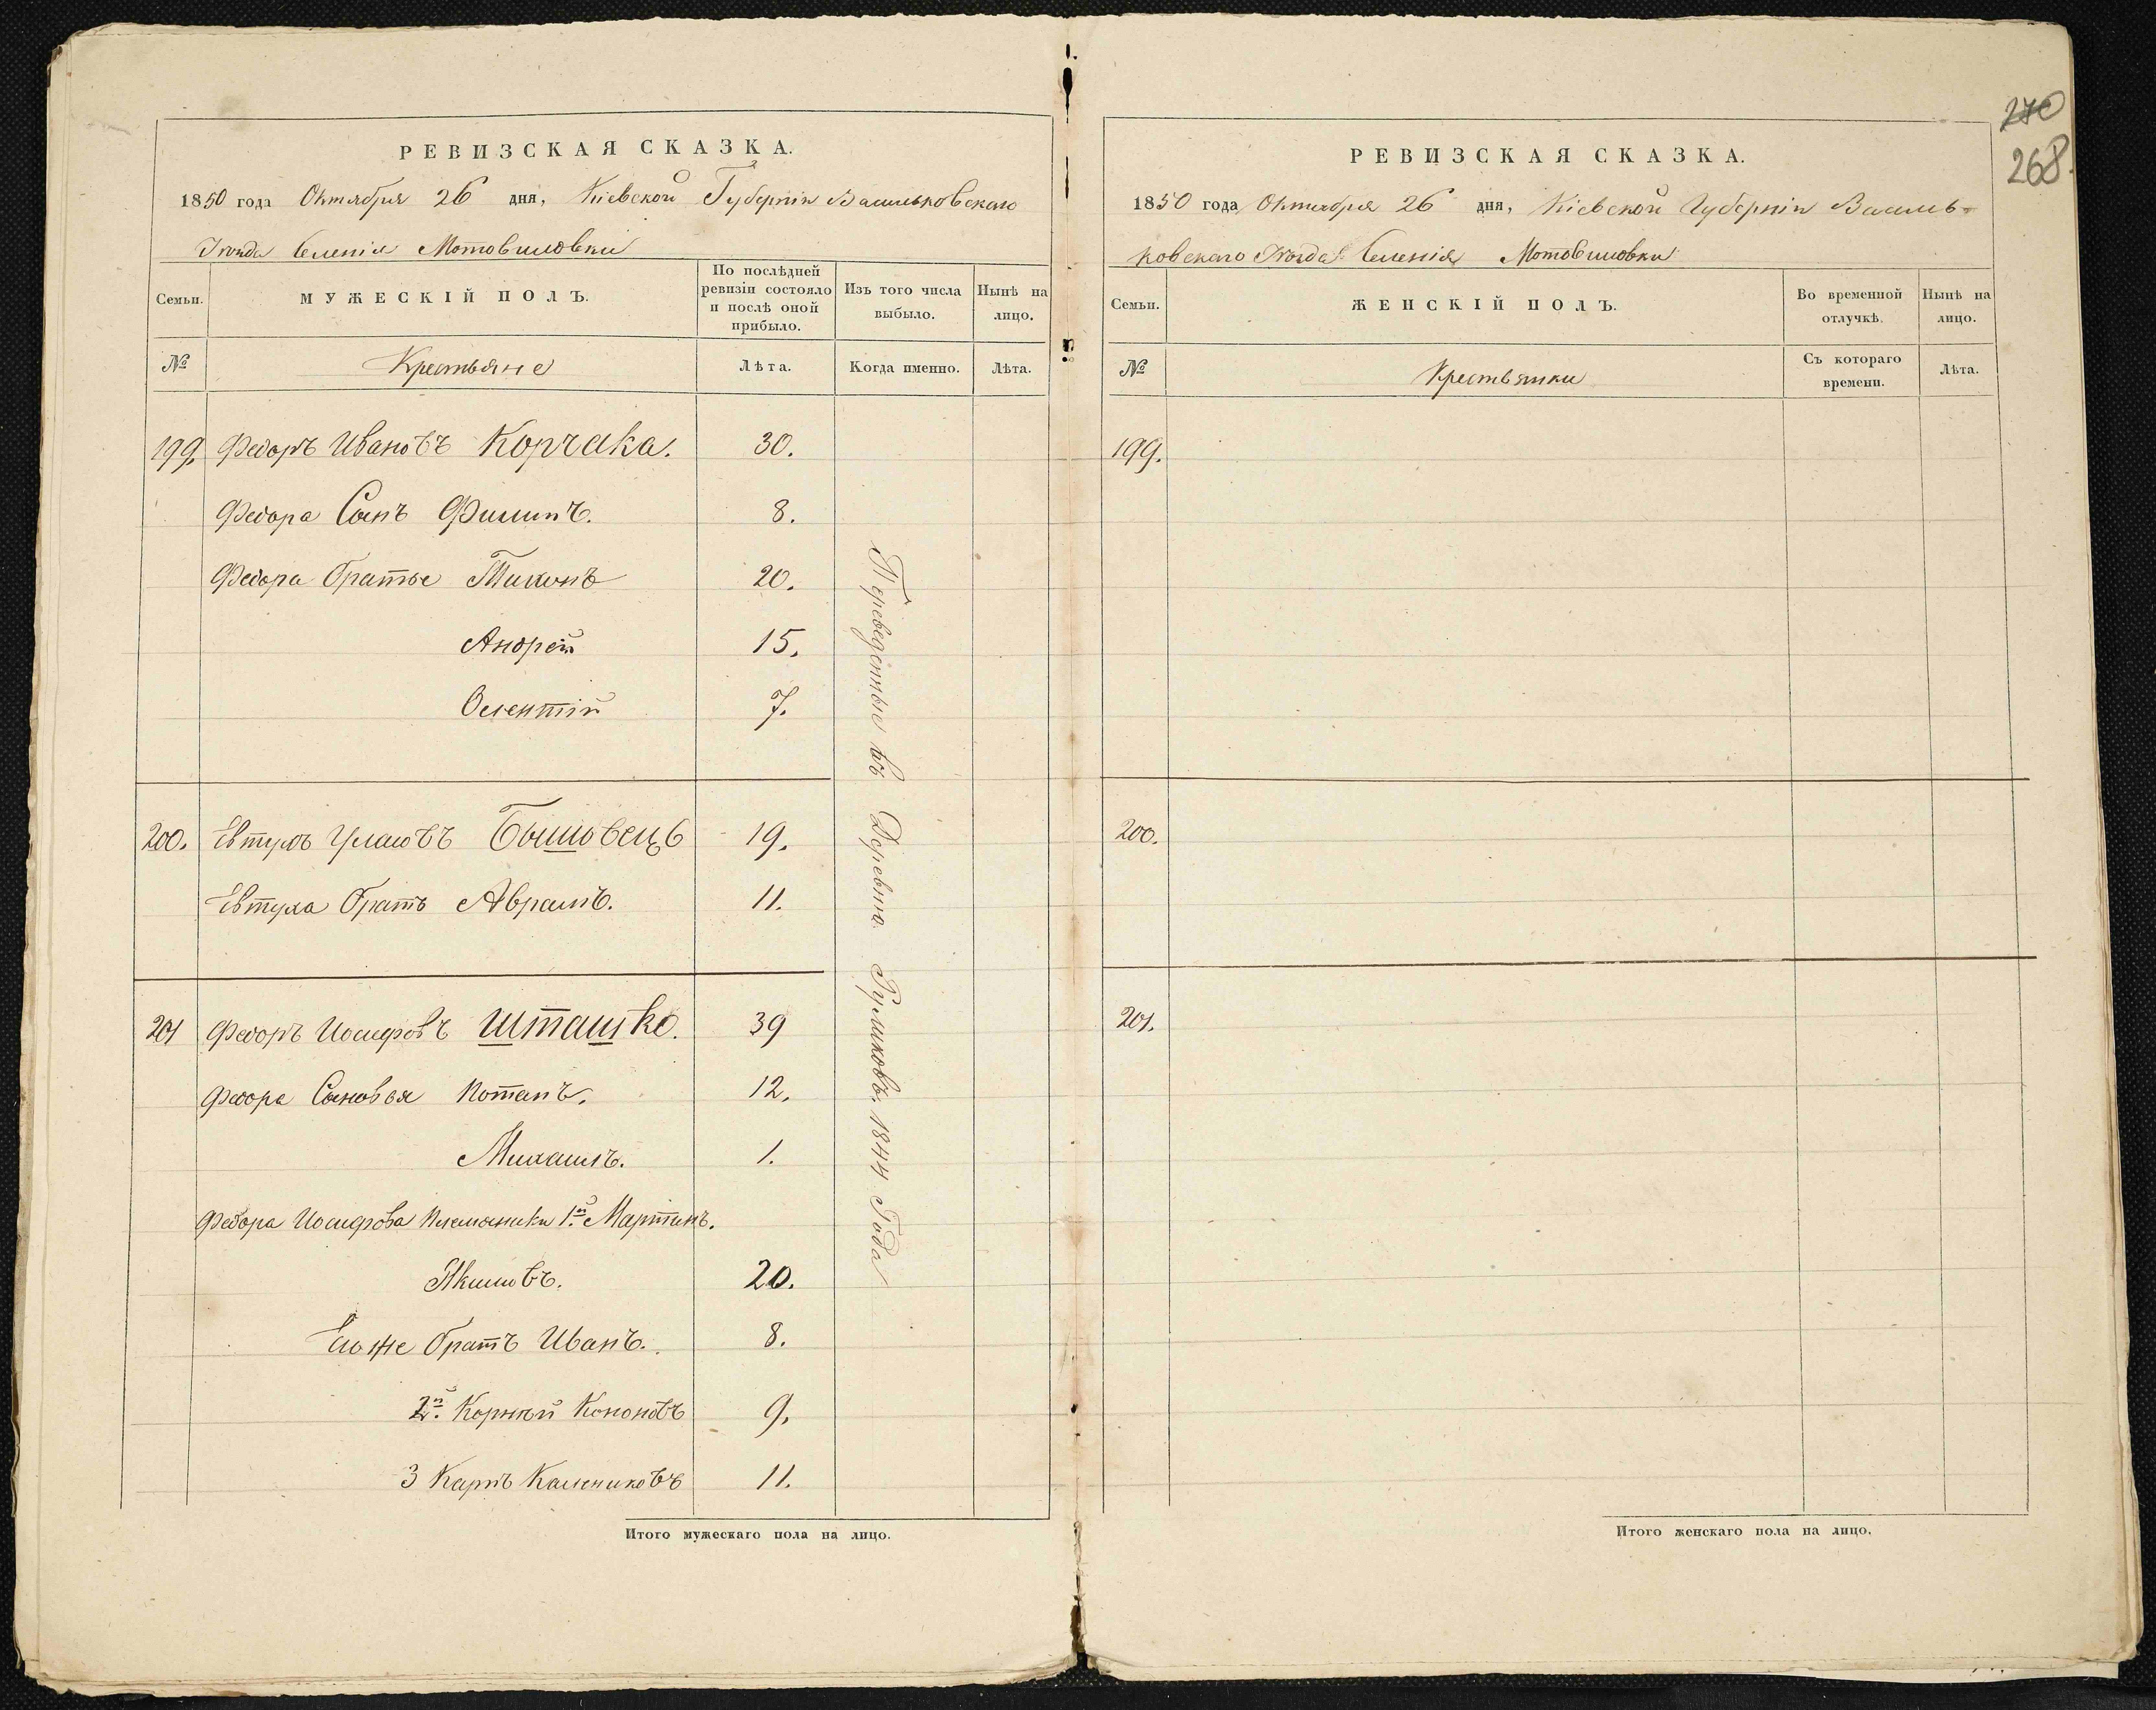 РЕВИЗСКАЯ СКАЗКА.
1850 года Октября 26 дня, Кіевской Губерніи Васильковскаго
Уѣзда Селенія Мотовиловки
Семьи.
МУЖЕСКІЙ ПОЛЪ.
По послѣдней ревизіи состояло и послѣ оной прибыло.
Изъ того числа выбыло.
Нынѣ на лицо.
№
Крестьяне
Лѣта.
Когда именно.
Лѣта.
199. Федоръ Ивановъ Корчака. 30.
Федора Сынъ Филипъ. 8.
Федора братье Тихонъ 20.
Андрей 15.
Олентій 7.
200. Евтухъ Бышовецъ 19.
Евтуха братъ Аврамъ. 11.
201 Федоръ Иосифовъ Шташко. 39
Федора Сыновья Потапъ. 12.
Михаилъ. 1.
Федора Иосифова племяники 1й Мартинъ.
Якимовъ. 20.
Его же братъ Иванъ. 8.
2й Корнѣй Кононовъ 9.
3 Карпъ Калениковъ 11.
Переведенные въ Деревню 1844 Года
Итого мужескаго пола на лицо.
270
268.
РЕВИЗСКАЯ СКАЗКА.
1850 года Октября 26 дня, Кіевской Губерніи Василь-
ковскаго Уѣзда Селенія Мотовиловки
Семьи.
ЖЕНСКІЙ ПОЛЪ.
Во временной отлучкѣ.
Нынѣ на лицо.
№
Крестьянки
Съ котораго времени.
Лѣта.
199.
200.
201.
Итого женскаго пола на лицо.